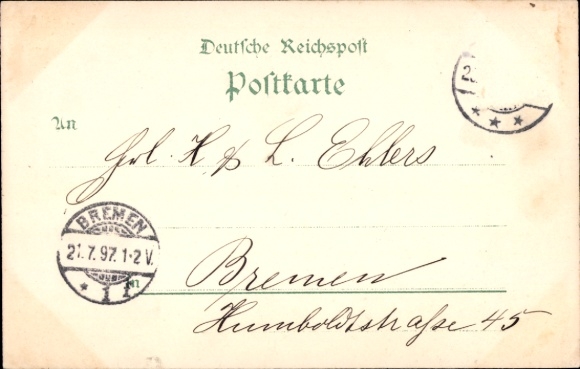 Deutsche Reichspost
Postkarte
An
Frl. H & L. Ehlers
BREMEN
21.7.97.1-2 V.
* 1 1
in
Bremen
Humboldtstraße 45